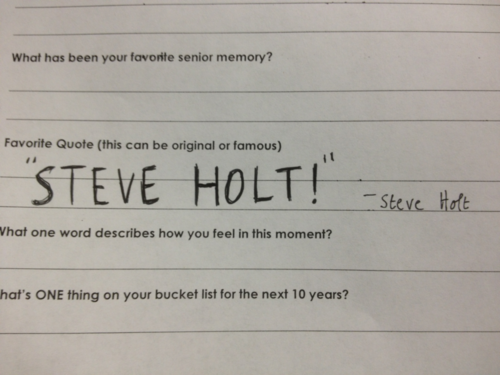 What has been your favorite senior memory?
Favorite Quote (this can be original or famous)
"STEVE HOLT!" - Steve Holt
What one word describes how you feel in this moment?
hat's ONE thing on your bucket list for the next 10 years?